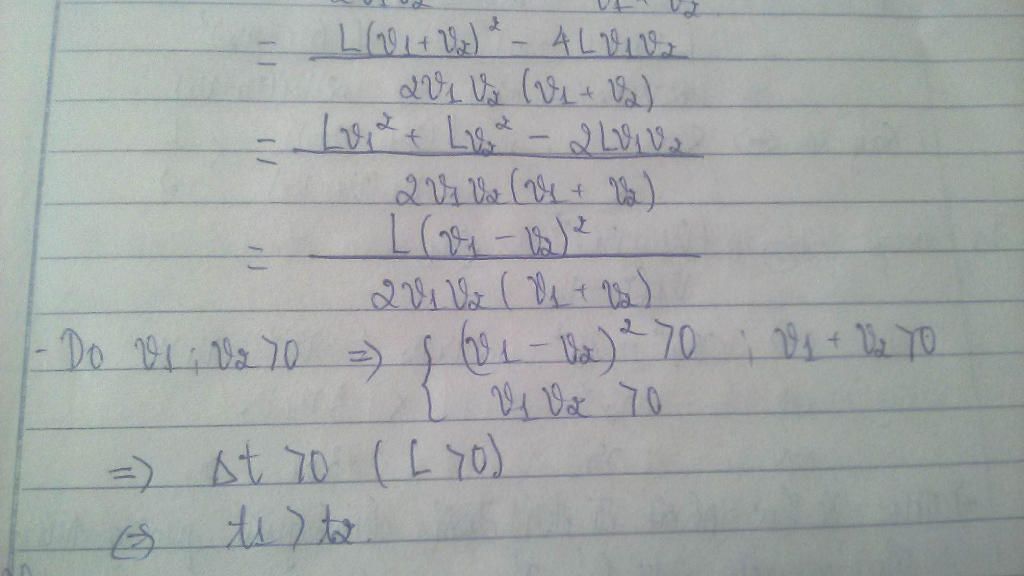 = L(v1+v2)² - 4Lv1v2 / 2v1v2(v1+v2)
= Lv1² + Lv2² - 2Lv1v2 / 2v1v2(v1+v2)
= L(v1-v2)² / 2v1v2(v1+v2)
- Do v1; v2>0 => { (v1-v2)²>0 ; v1+v2>0
v1v2 >0
=> Δt>0 (L>0)
<=> t1>t2.